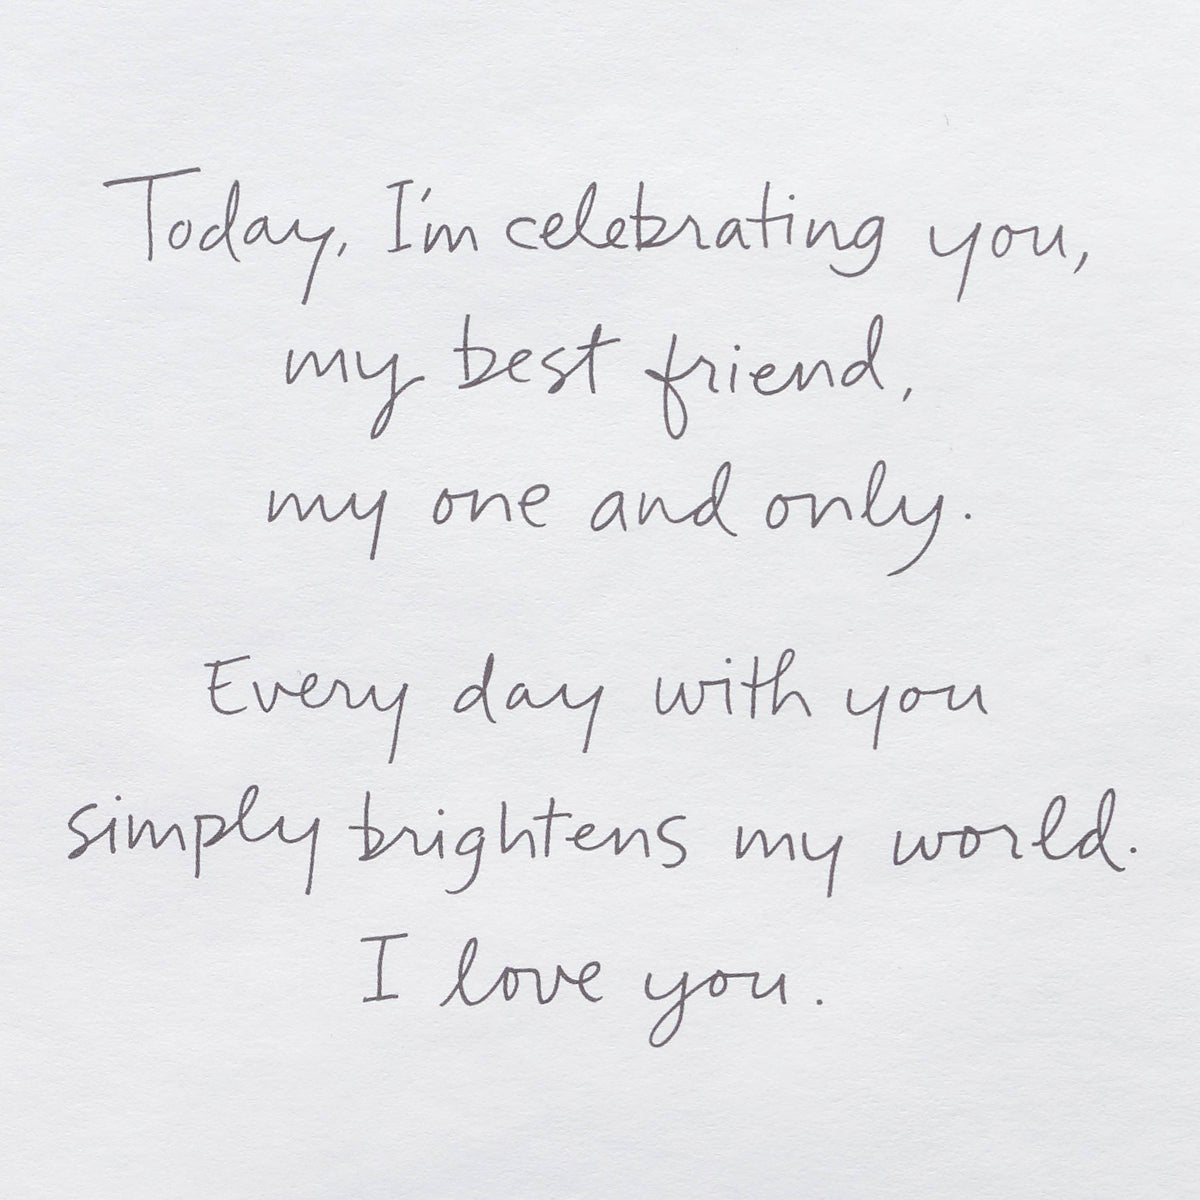 Today, I'm celebrating you,
my best friend,
my one and only.
Every day with you
simply brightens my world.
I love you.